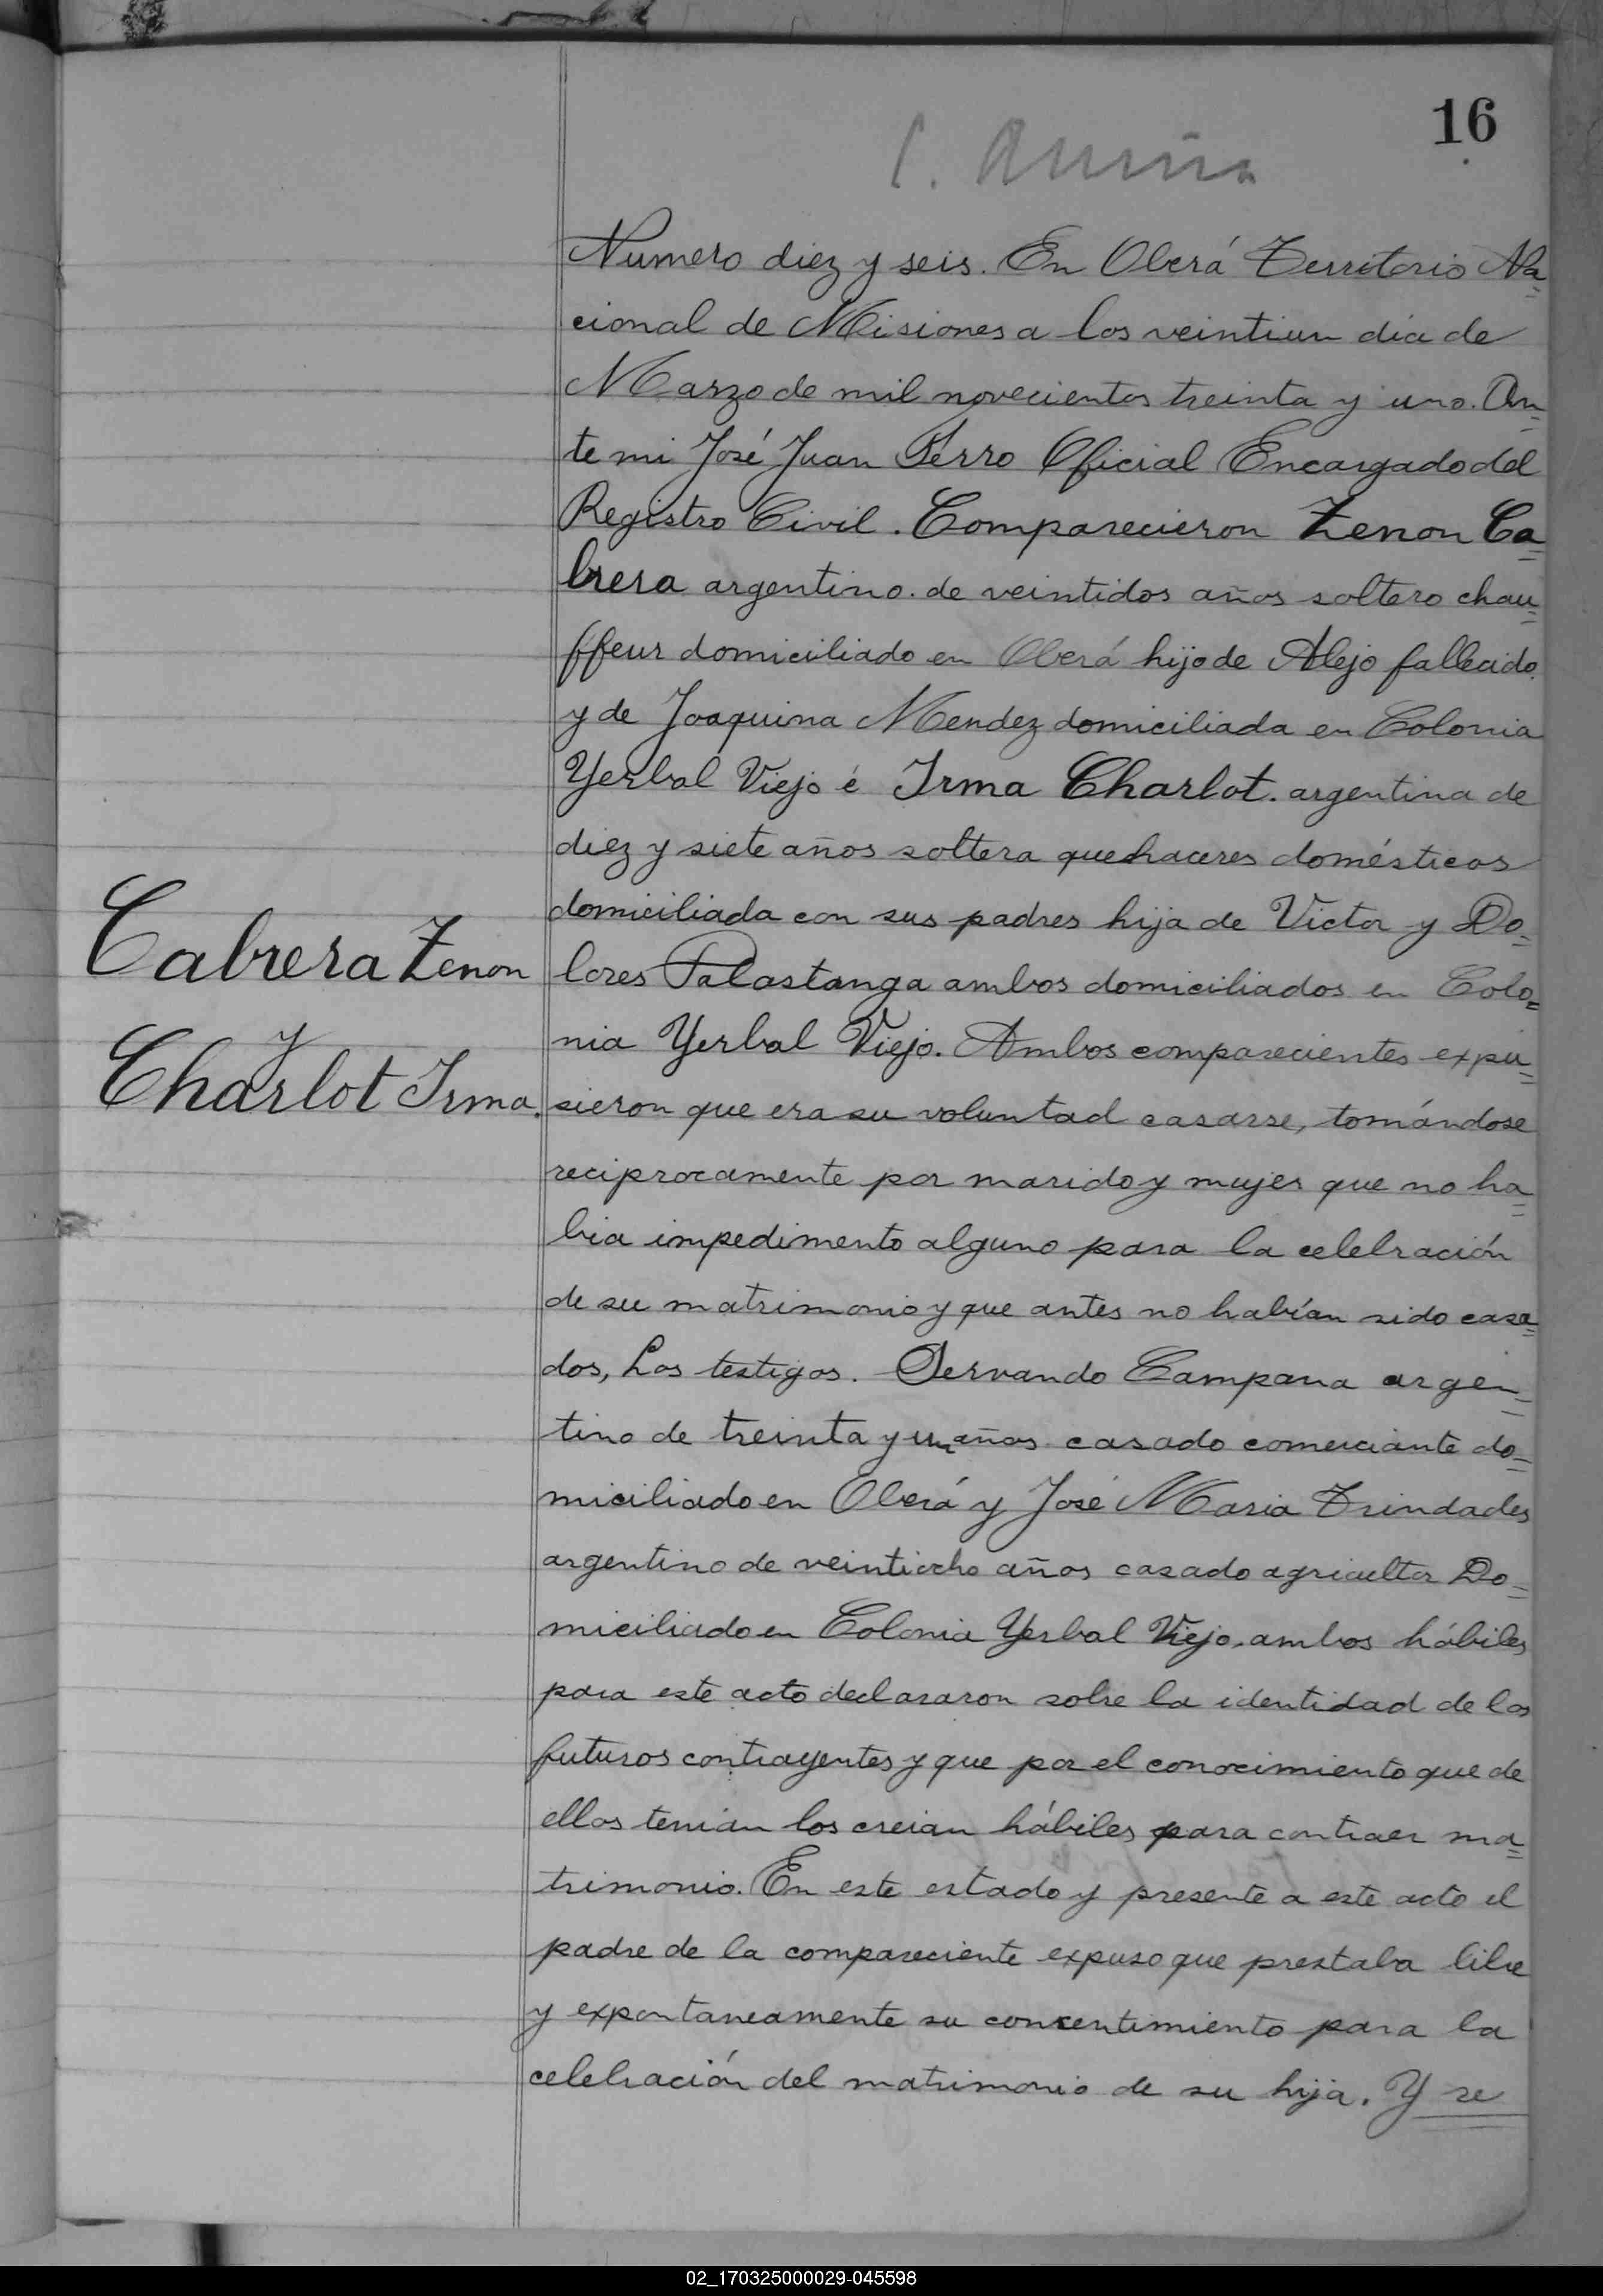 16
Numero diez y seis. En Oberá Territorio Na=
cional de Misiones a los veintiun dia de
Marzo de mil novecientos treinta y uno. An=
te mi José Juan Ferro Oficial Encargado del
Registro Civil. Comparecieron Zenon Ca=
brera argentino. de veintidos años soltero chau=
ffeur domiciliado en Oberá hijo de Alejo fallecido
y de Joaquina Mendez domiciliada en Colonia
Yerbal Viejo é Irma Charlot. argentina de
diez y siete años soltera quehaceres domésticos
domiciliada con sus padres hija de Victor y Do=
Cabrera Zenon
lores Palastanga ambos domiciliados en Colo=
nia Yerbal Viejo. Ambos comparecientes expu=
y
Charlot Irma.
sieron que era su voluntad casarse, tomándose
reciprocamente por marido y mujer que no ha=
bia impedimento alguno para la celebración
de su matrimonio y que antes no habían sido casa=
dos, Los testigos. Servando Campana argen=
tino de treinta y un años casado comerciante do=
miciliado en Oberá y José Maria Trindades
argentino de veintiocho años casado agricultor Do=
miciliado en Colonia Yerbal Viejo. ambos hábiles
para este acto declararon sobre la identidad de los
futuros contrayentes y que por el conocimiento que de
ellos tenian los creian hábiles para contraer ma=
trimonio. En este estado y presente a este acto el
padre de la compareciente expuso que prestaba libre
y expontaneamente su consentimiento para la
celebración del matrimonio de su hija. Y se
02_170325000029-045598